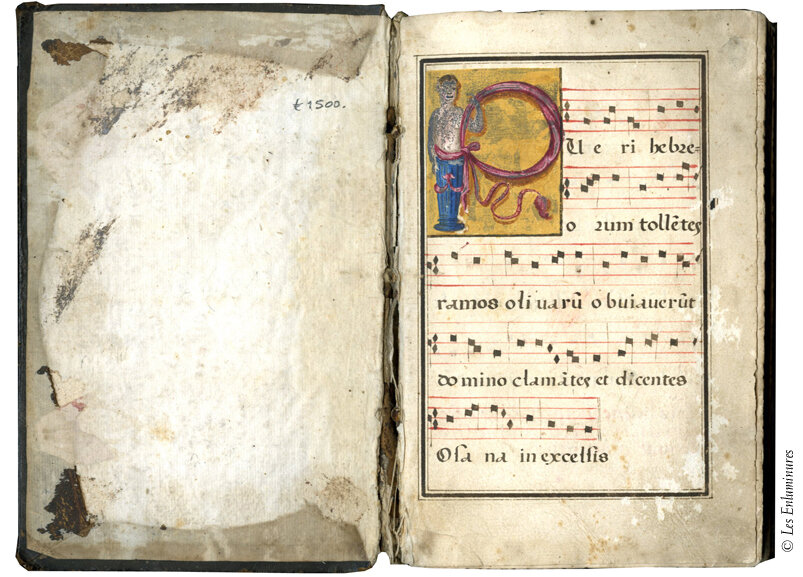 € 1500.
PU e ri hebre-
o rum tollētes
ramos oli uarū o buiauerūt
do mino clamātes et dicentes
Osa na in excelsis
© Les Enluminures